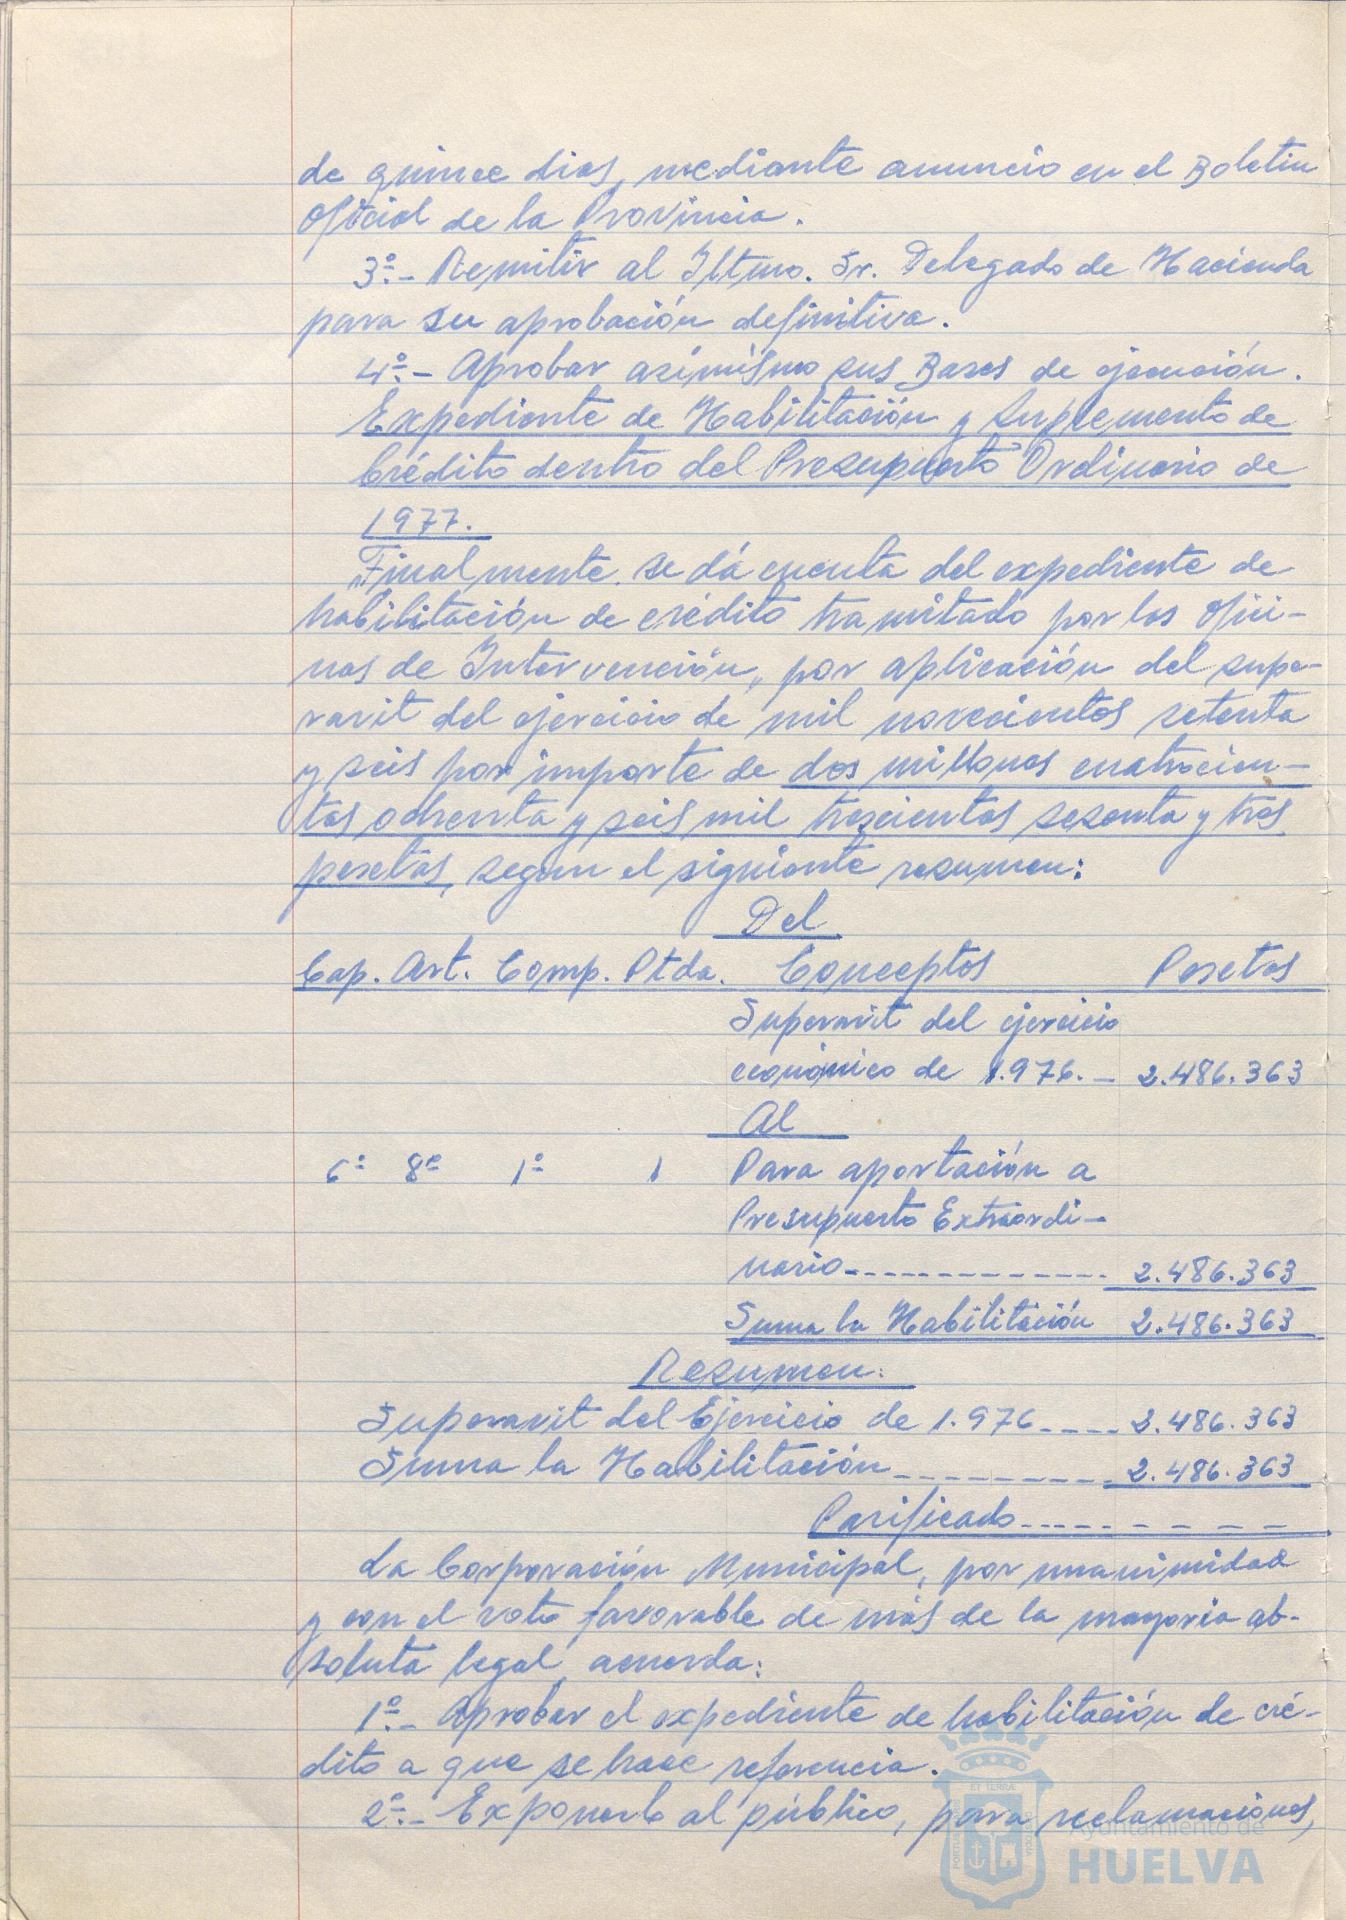 de quince dias, mediante anuncio en el Boletin
Oficial de la Provincia.
3º.- Remitir al Iltmo. Sr. Delegado de Hacienda
para su aprobación definitiva.
4º.- Aprobar asímismo sus Bases de ejecución.
Expediente de Habilitación y Suplemento de
Crédito dentro del Presupuesto Ordinario de
1977.
"Finalmente se dá cuenta del expediente de
habilitación de crédito tramitado por las Ofici-
nas de Intervención, por aplicación del supe-
ravit del ejercicio de mil novecientos setenta
y seis por importe de dos millones cuatrocien-
tas ochenta y seis mil trescientas sesenta y tres
pesetas, segun el siguiente resumen:
Del
Cap. Art. Comp. Ptda. Conceptos Pesetas
Superavit del ejercicio
económico de 1.976.- 2.486.363
Al
6º 8º 1º 1 Para aportación a
Presupuesto Extraordi-
nario------------- 2.486.363
Suma la Habilitación 2.486.363
Resumen:
Superavit del Ejercicio de 1.976---- 2.486.363
Suma la Habilitación--------- 2.486.363
Parificado---------
La Corporación Municipal, por unanimidad
y con el voto favorable de más de la mayoria ab-
soluta legal, acuerda:
1º.- Aprobar el expediente de habilitación de cré-
dito a que se hace referencia.
2º.- Exponerlo al público, para reclamaciones,
ET TERRÆ
Ayuntamiento de
HUELVA